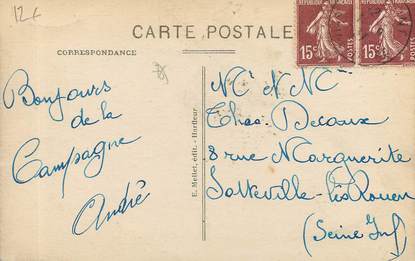 12€
CARTE POSTALE
RÉPUBLIQUE FRANÇAISE
15c
POSTES
RÉPUBLIQUE FRANÇAISE
15c
POSTES
CORRESPONDANCE
Bonjours
de la
Campagne
André
E. Mellet, édit. - Harfleur
Mr & Mme
Decaux
8 rue Marguerite
Sotteville-lès-Rouen
(Seine Inf)